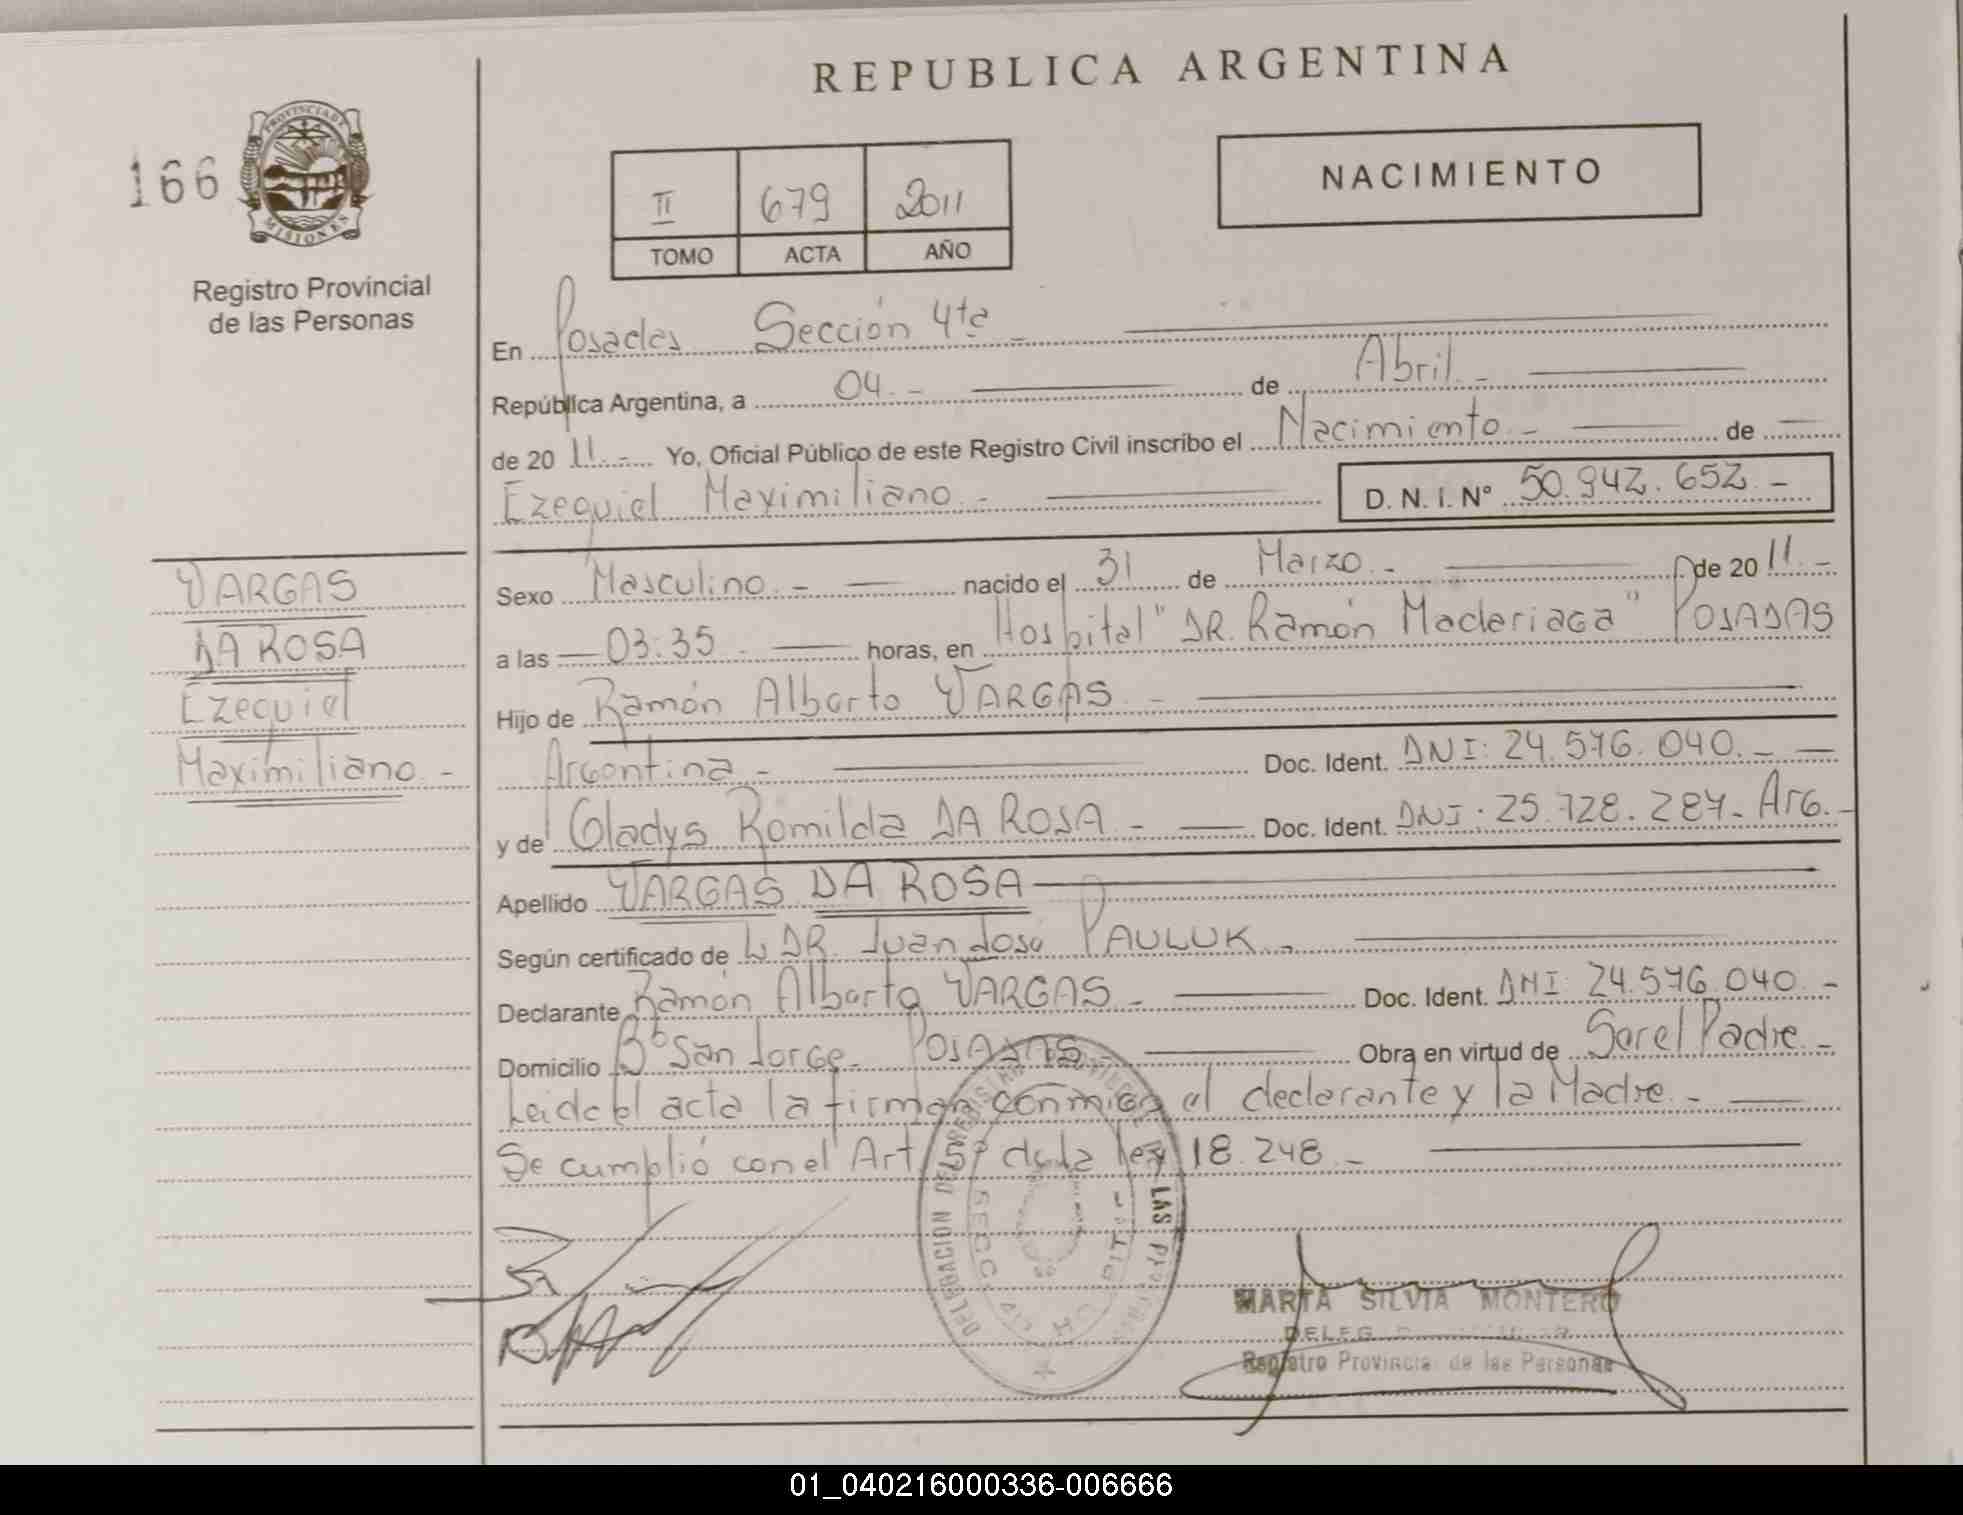 REPUBLICA ARGENTINA
166
PROVINCIA DE MISIONES
Registro Provincial
de las Personas
II 679 2011
TOMO ACTA AÑO
NACIMIENTO
En Posadas Sección 4ta -
República Argentina, a 04.- de Abril.-
de 20 11.- Yo, Oficial Público de este Registro Civil inscribo el Nacimiento - de
Ezequiel Maximiliano.- D. N. I. N° 50.942.652.-
VARGAS
DA ROSA
Ezequiel
Maximiliano.-
Sexo Masculino.- nacido el 31 de Marzo.- de 20 11.-
a las 03:35.- horas, en Hospital "DR. Ramón Maderiaga" POSADAS
Hijo de Ramón Alberto VARGAS.-
Argentina - Doc. Ident. DNI: 24.576.040.-
y de Gladys Romilda DA ROSA - Doc. Ident. DNI: 25.728.287- Arg.-
Apellido VARGAS DA ROSA
Según certificado de DR. Juan José PAULUK.-
Declarante Ramón Alberto VARGAS.- Doc. Ident. DNI: 24.576.040.-
Domicilio B° San Jorge- POSADAS- Obra en virtud de Ser el Padre.-
Leida el acta la firman conmigo el declarante y la Madre.-
Se cumplió con el Art. 5° de la ley 18.248.-
DELEGACION DEL REGISTRO PROVINCIAL DE LAS PERSONAS
MARTA SILVIA MONTERO
Registro Provincial de las Personas
01_040216000336-006666